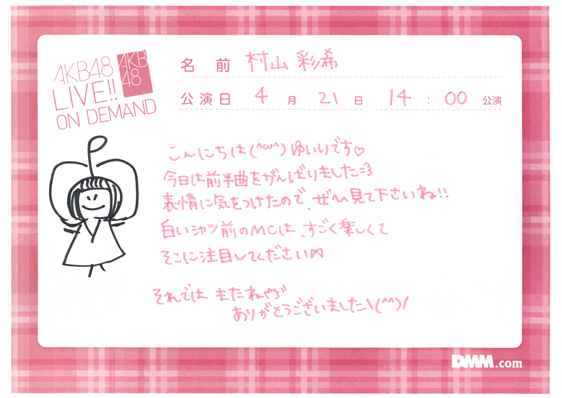 AKB48
LIVE!!
ON DEMAND
AKB
48
名前 村山 彩希
公演日 4月21日 14:00公演
こんにちは(^ω^)ゆいりです♡
今日は前半曲をがんばりました=3
表情に気をつけたので、ぜひ見て下さいね!!
白いシャツ前のMCは、すごく楽しくて
そこに注目してください
それでは またねー
ありがとうございました\(^^)/
DMM.com